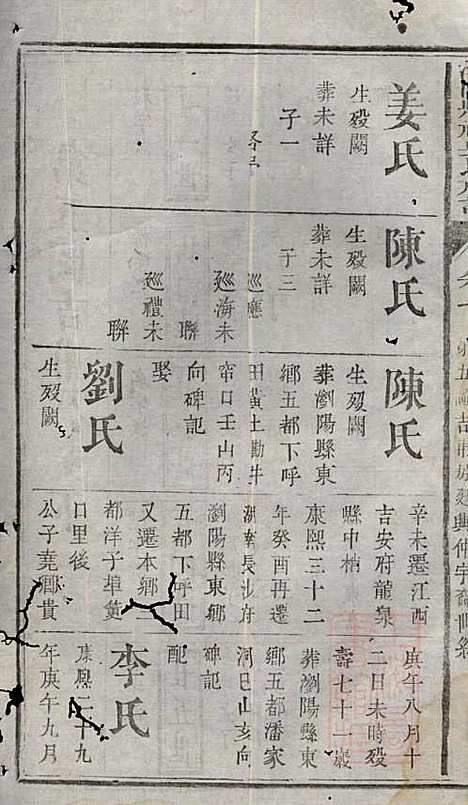 姜氏
生歿闕
葬未詳
子一
陳氏
生歿闕
葬未詳
子三
廵應
廵海未
聯
廵禮未
聯
陳氏
生歿闕
葬瀏陽縣東
鄉五都下呼
田黃土坳井
窄口壬山丙
向碑記
娶
劉氏
生歿闕
辛未遷江西
吉安府龍泉
縣中柟
康熙三十二
年癸酉再遷
湖南長沙府
瀏陽縣東鄉
五都下呼田
又遷本鄉
都洋子埠
里後
公子堯鄉貴
庚午八月十
二日未時歿
壽七十一歲
葬瀏陽縣東
鄉五都潘家
洞巳山亥向
碑記
配
李氏
康熙二十九
年庚午九月
典仲宇裔世系